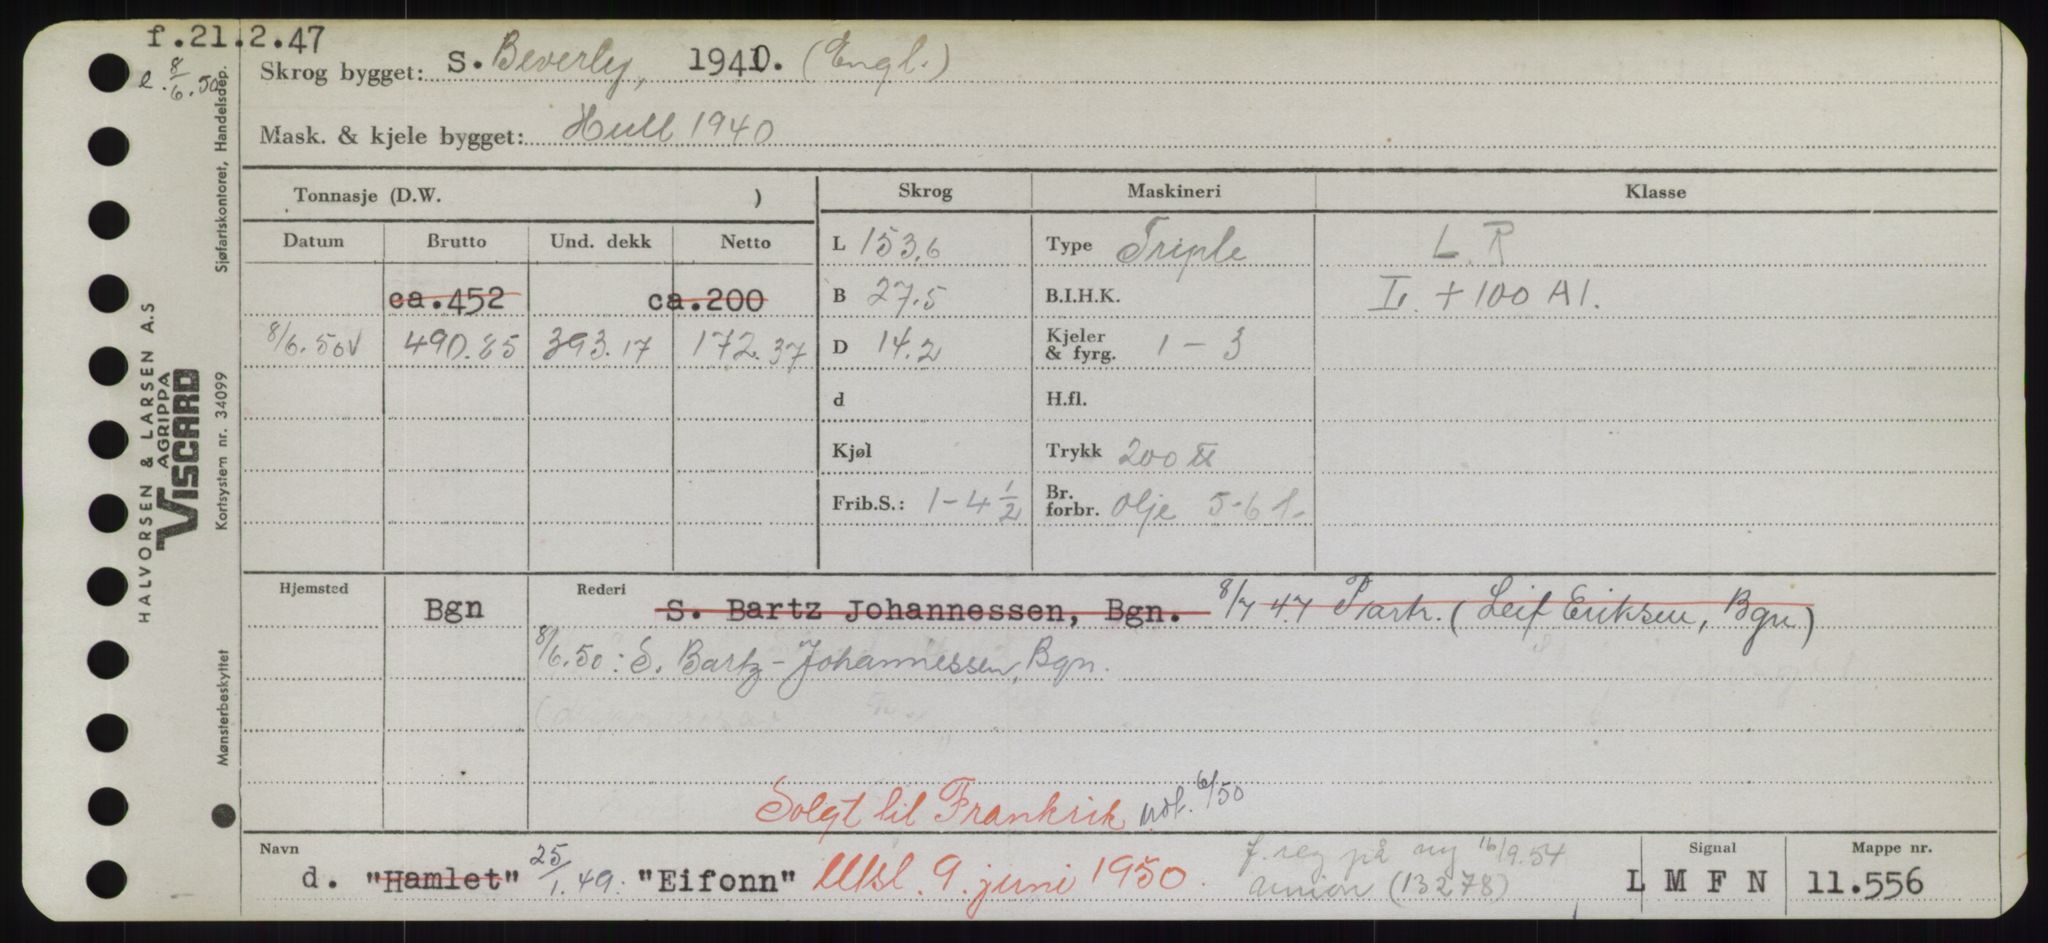 f.21.2.47
e. 8/6.50
Skrog bygget: S. Beverley, 1940. (Engl.)
Mask. & kjele bygget: Hull 1940
Tonnasje (D.W. )
Skrog
Maskineri
Klasse
Datum
Brutto
Und. dekk
Netto
ca.452
ca.200
8/6.50
490.85
393.17
172.37
L 153.6
B 27.5
D 14.2
d
Kjøl
Frib.S.: 1-4 1/2
Type Triple
B.I.H.K.
Kjeler & fyrg. 1-3
H.fl.
Trykk 200
Br. forbr. Olje 5-6 t.
L.R
+100 A1.
Hjemsted
Bgn
Rederi
S. Bartz Johannessen, Bgn. 8/7 47 Partr. (Leif Eriksen, Bgn)
8/6.50: S. Bartz-Johannessen, Bgn.
Solgt til Frankrik not. 6/50
Navn
d. "Hamlet" 25/1.49: "Eifonn" Utsl. 9. juni 1950.
f. reg på ny 16/9.54
(13278)
Signal
L M F N
Mappe nr.
11.556
HALVORSEN & LARSEN A.S
AGRIPPA
VISCARD
Kortsystem nr. 34099
Sjøfartskontoret, Handelsdep.
Mønsterbeskyttet